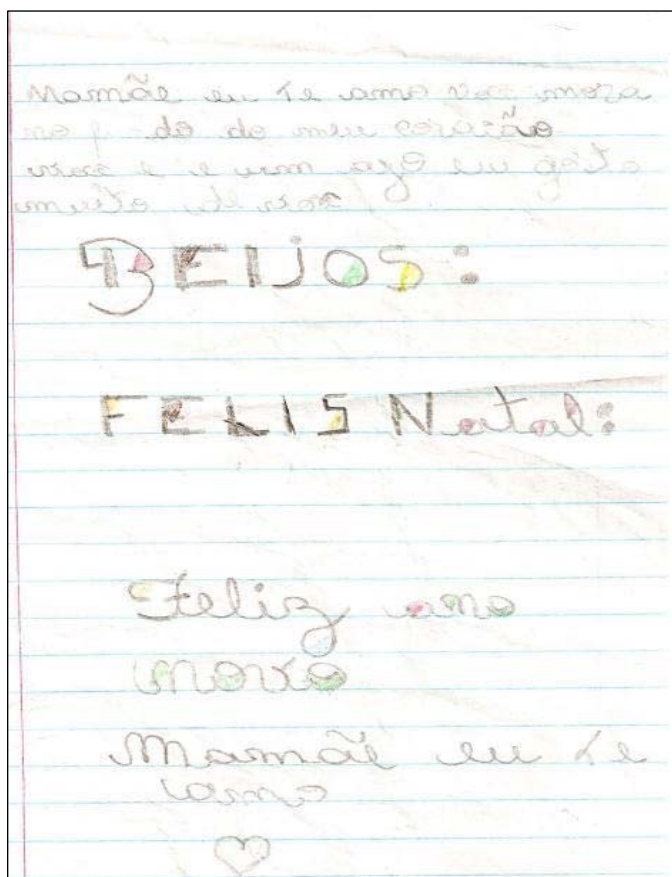 Mamãe eu te amo voce mora
no f do do meu coração
voce e e um ago eu goto
muito de voce
BEIJOS:
FELIS Natal:
Feliz ano
novo
Mamãe eu te
amo